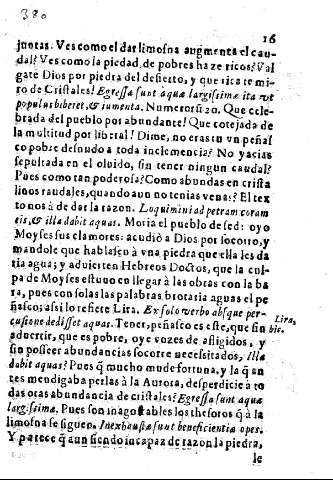 380
16
juntas. Ves como el dar limosna augmenta el cau-
dal? Ves como la piedad de pobres haze ricos? Val
gate Dios por piedra del desierto, y que rica te mi-
ro de Cristales! Egressæ sunt aquæ largissimæ ita vt
populus biberet, & iumenta. Numeror. 20. Que cele-
brada del pueblo por abundante! Que cotejada de
la multitud por liberal! Dime, no eras tu vn peñas
co pobre desnudo a toda inclemencia? No yacias
sepultada en el oluido, sin tener ningun caudal?
Pues como tan poderosa? Como abundas en crista
linos raudales, quando aun no tenias venas? El tex
to nos à de dar la razon. Loquimini ad petram coram
eis, & illa dabit aquas. Moria el pueblo de sed: oyo
Moyses sus clamores: acudiò a Dios por socorro, y
mandole que hablasen à vna piedra que ella les da
ria agua; y aduierten Hebreos Doctos, que la cul-
pa de Moyses estuuo en llegar à las obras con la ba
ra, pues con solas las palabras brotaria aguas el pe
ñasco; assi lo refiere Lira. Ex solo verbo absque per-
cussione dedisset aquas. Tener, peñasco es este, que sin
Lira, hic.
aduertir, que es pobre, oye vozes de afligidos, y
sin posseer abundancias socorre necesitados, Illa
dabit aquas? Pues q̃ mucho mude fortuna, y la q̃ an
tes mendigaba perlas à la Aurora, desperdicie à to
das oras abundancia de cristales? Egressæ sunt aquæ
largissimæ. Pues son inagotables los thesoros q̃ à la
limosna se siguen. Inexhaustæ sunt beneficientiæ opes.
Y parece q̃ aun siendo incapaz de razon la piedra,
le